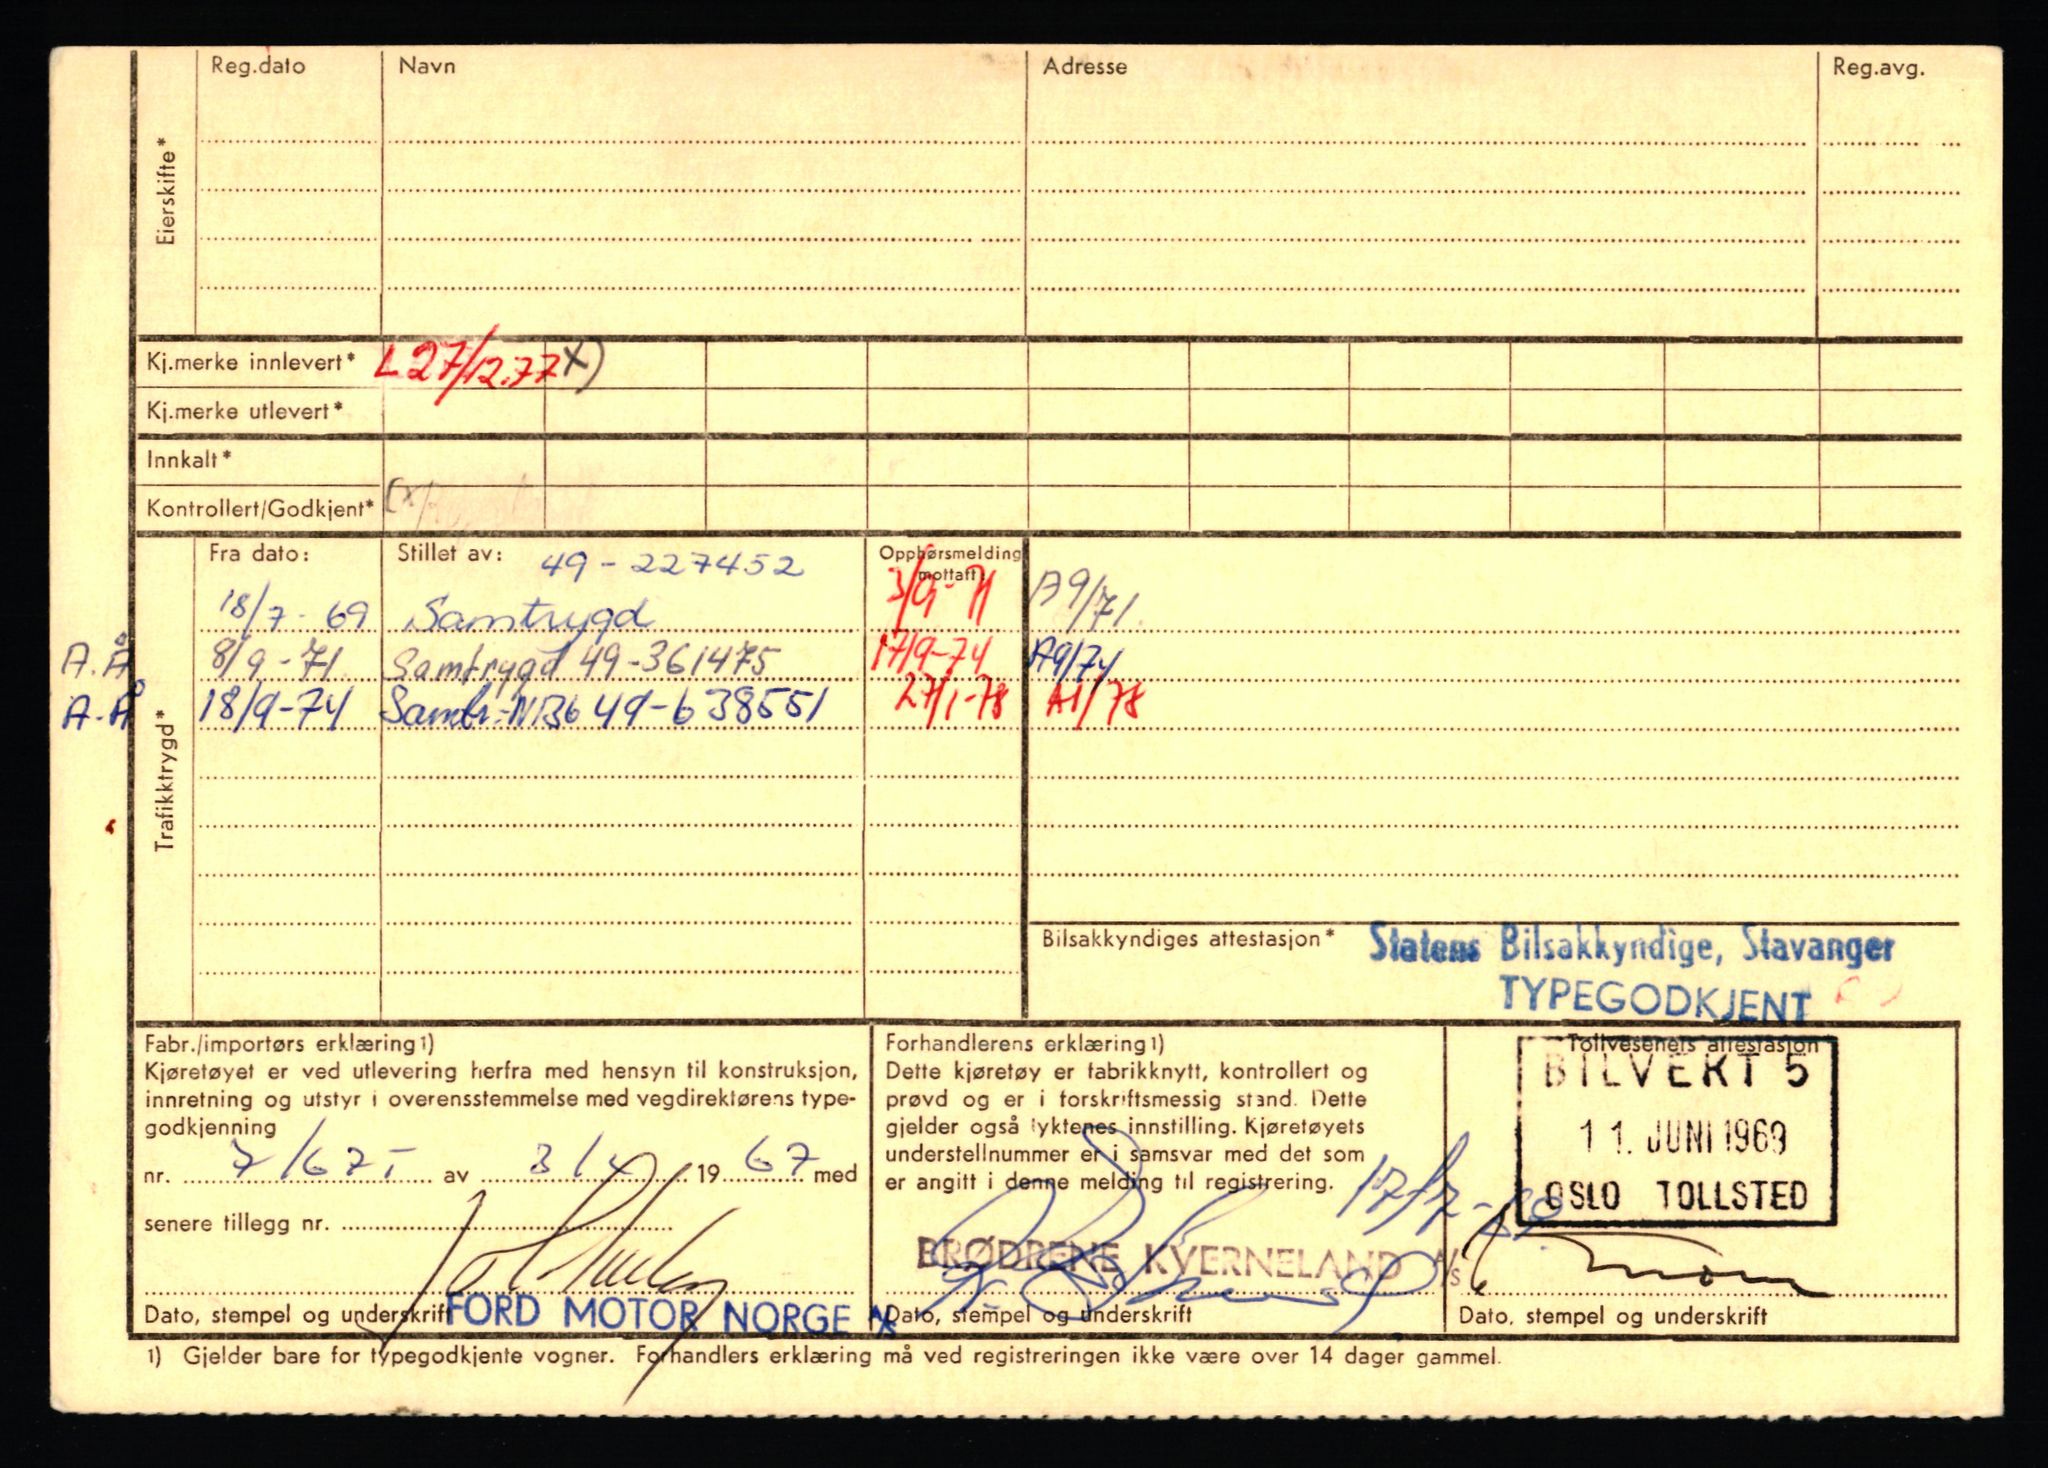 Reg.dato Navn Adresse Reg.avg.
Eierskifte*
Kj.merke innlevert* L 27/12.77 x)
Kj.merke utlevert*
Innkalt*
Kontrollert/Godkjent* (x)
Trafikktrygd*
Fra dato: Stillet av: 49-227452 Opphørsmelding mottatt:
18/7-69 Samtrygd 3/9-71 A9/71.
A.Å 8/9-71. Samtrygd 49-361475 17/9-74 A9/74
A-Å 18/9-74 49-638551 27/1-78 A1/78
Bilsakkyndiges attestasjon* Statens Bilsakkyndige, Stavanger
TYPEGODKJENT
Fabr./importørs erklæring1)
Kjøretøyet er ved utlevering herfra med hensyn til konstruksjon,
innretning og utstyr i overensstemmelse med vegdirektørens type-
godkjenning
nr. 7/67 I av 3/4 1967 med
senere tillegg nr.
Dato, stempel og underskrift FORD MOTOR NORGE A/S
Forhandlerens erklæring1)
Dette kjøretøy er fabrikknytt, kontrollert og
prøvd og er i forskriftsmessig stand. Dette
gjelder også lyktenes innstilling. Kjøretøyets
understellnummer er i samsvar med det som
er angitt i denne melding til registrering. 17/7-69
BRØDRENE KVERNELAND A/S
Dato, stempel og underskrift
Tollvesenets attestasjon
BILVERT 5
11. JUNI 1969
OSLO TOLLSTED
Dato, stempel og underskrift
1) Gjelder bare for typegodkjente vogner. Forhandlers erklæring må ved registreringen ikke være over 14 dager gammel.